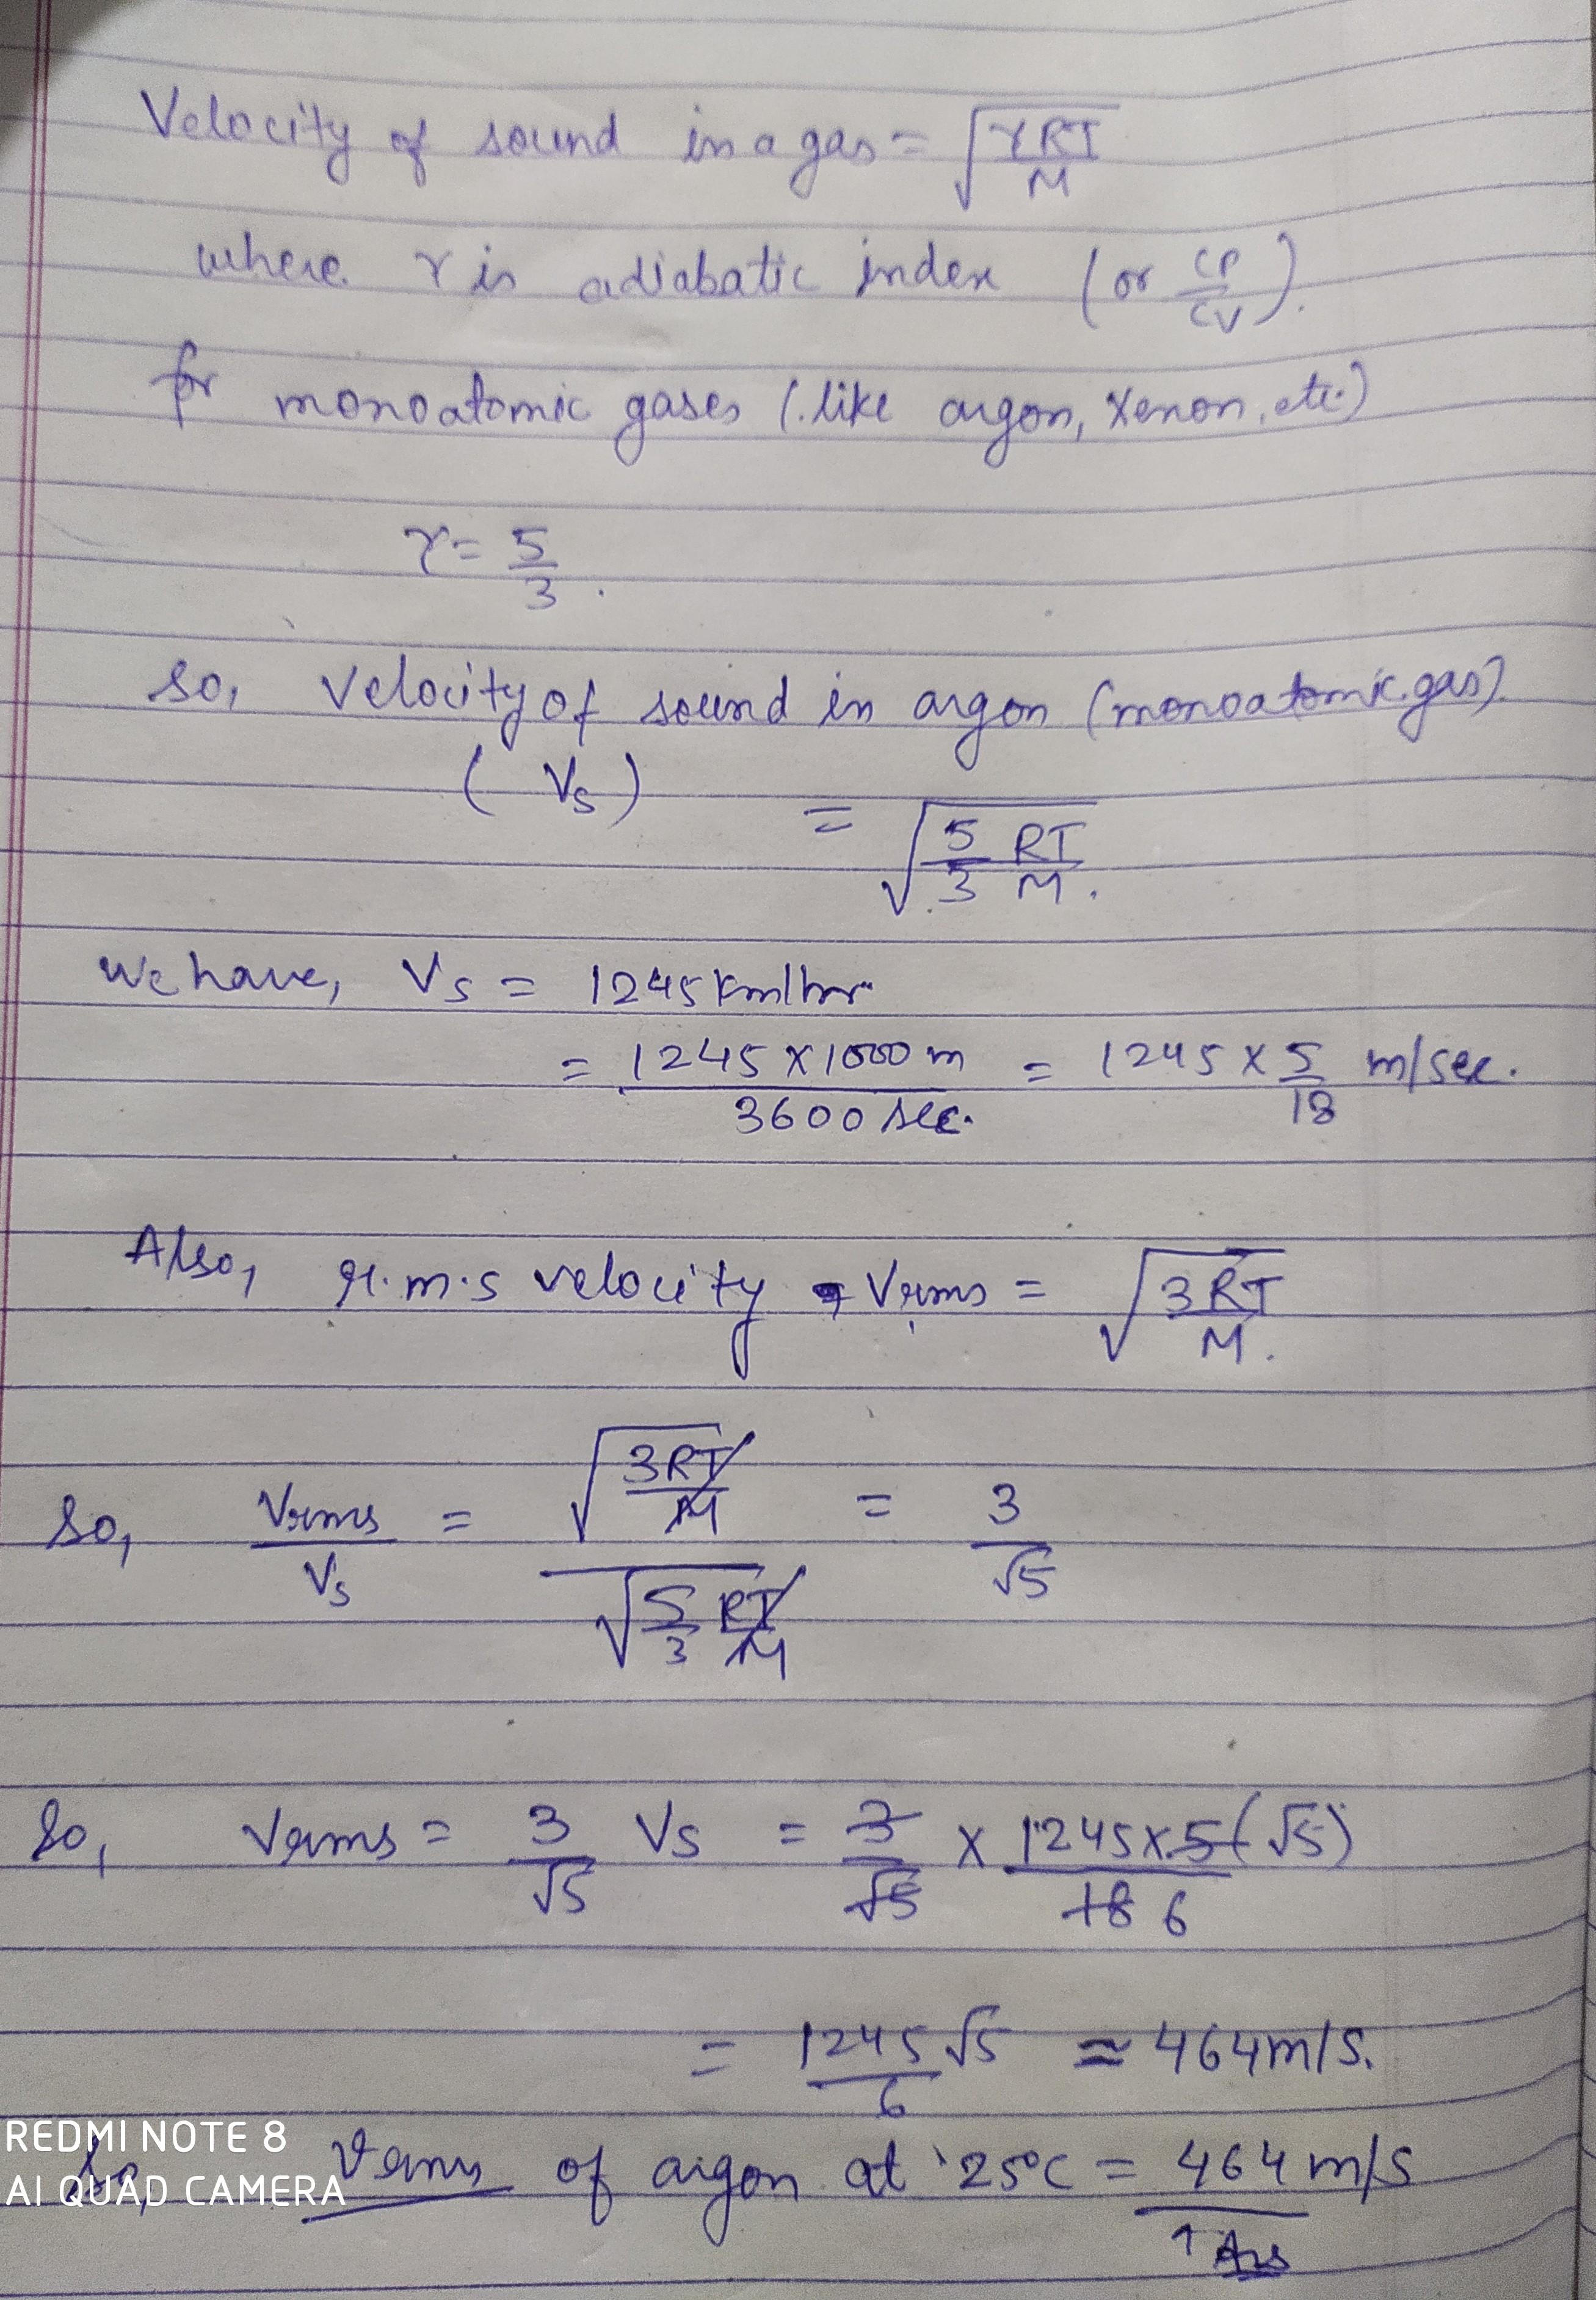 Velocity of sound in a gas = √(γRT/M)
where γ is adiabatic index (or CP/CV).
for monoatomic gases (like argon, Xenon, etc.)
γ = 5/3.
so, Velocity of sound in argon (monoatomic gas)
(Vs) = √(5/3 RT/M).
We have, Vs = 1245 Km/hr
= 1245 X 1000 m / 3600 sec. = 1245 X 5/18 m/sec.
Also, r.m.s velocity Vrms = √(3RT/M).
So, Vrms/Vs = √(3RT/M) / √(5/3 RT/M) = 3/√5
So, Vrms = 3/√5 Vs = 3/√5 X 1245 X 5 (√5) / 18 6
= 1245/6 √5 ≈ 464 m/s.
So, Vrms of argon at 25°C = 464 m/s
↑ Ans
REDMI NOTE 8
AI QUAD CAMERA